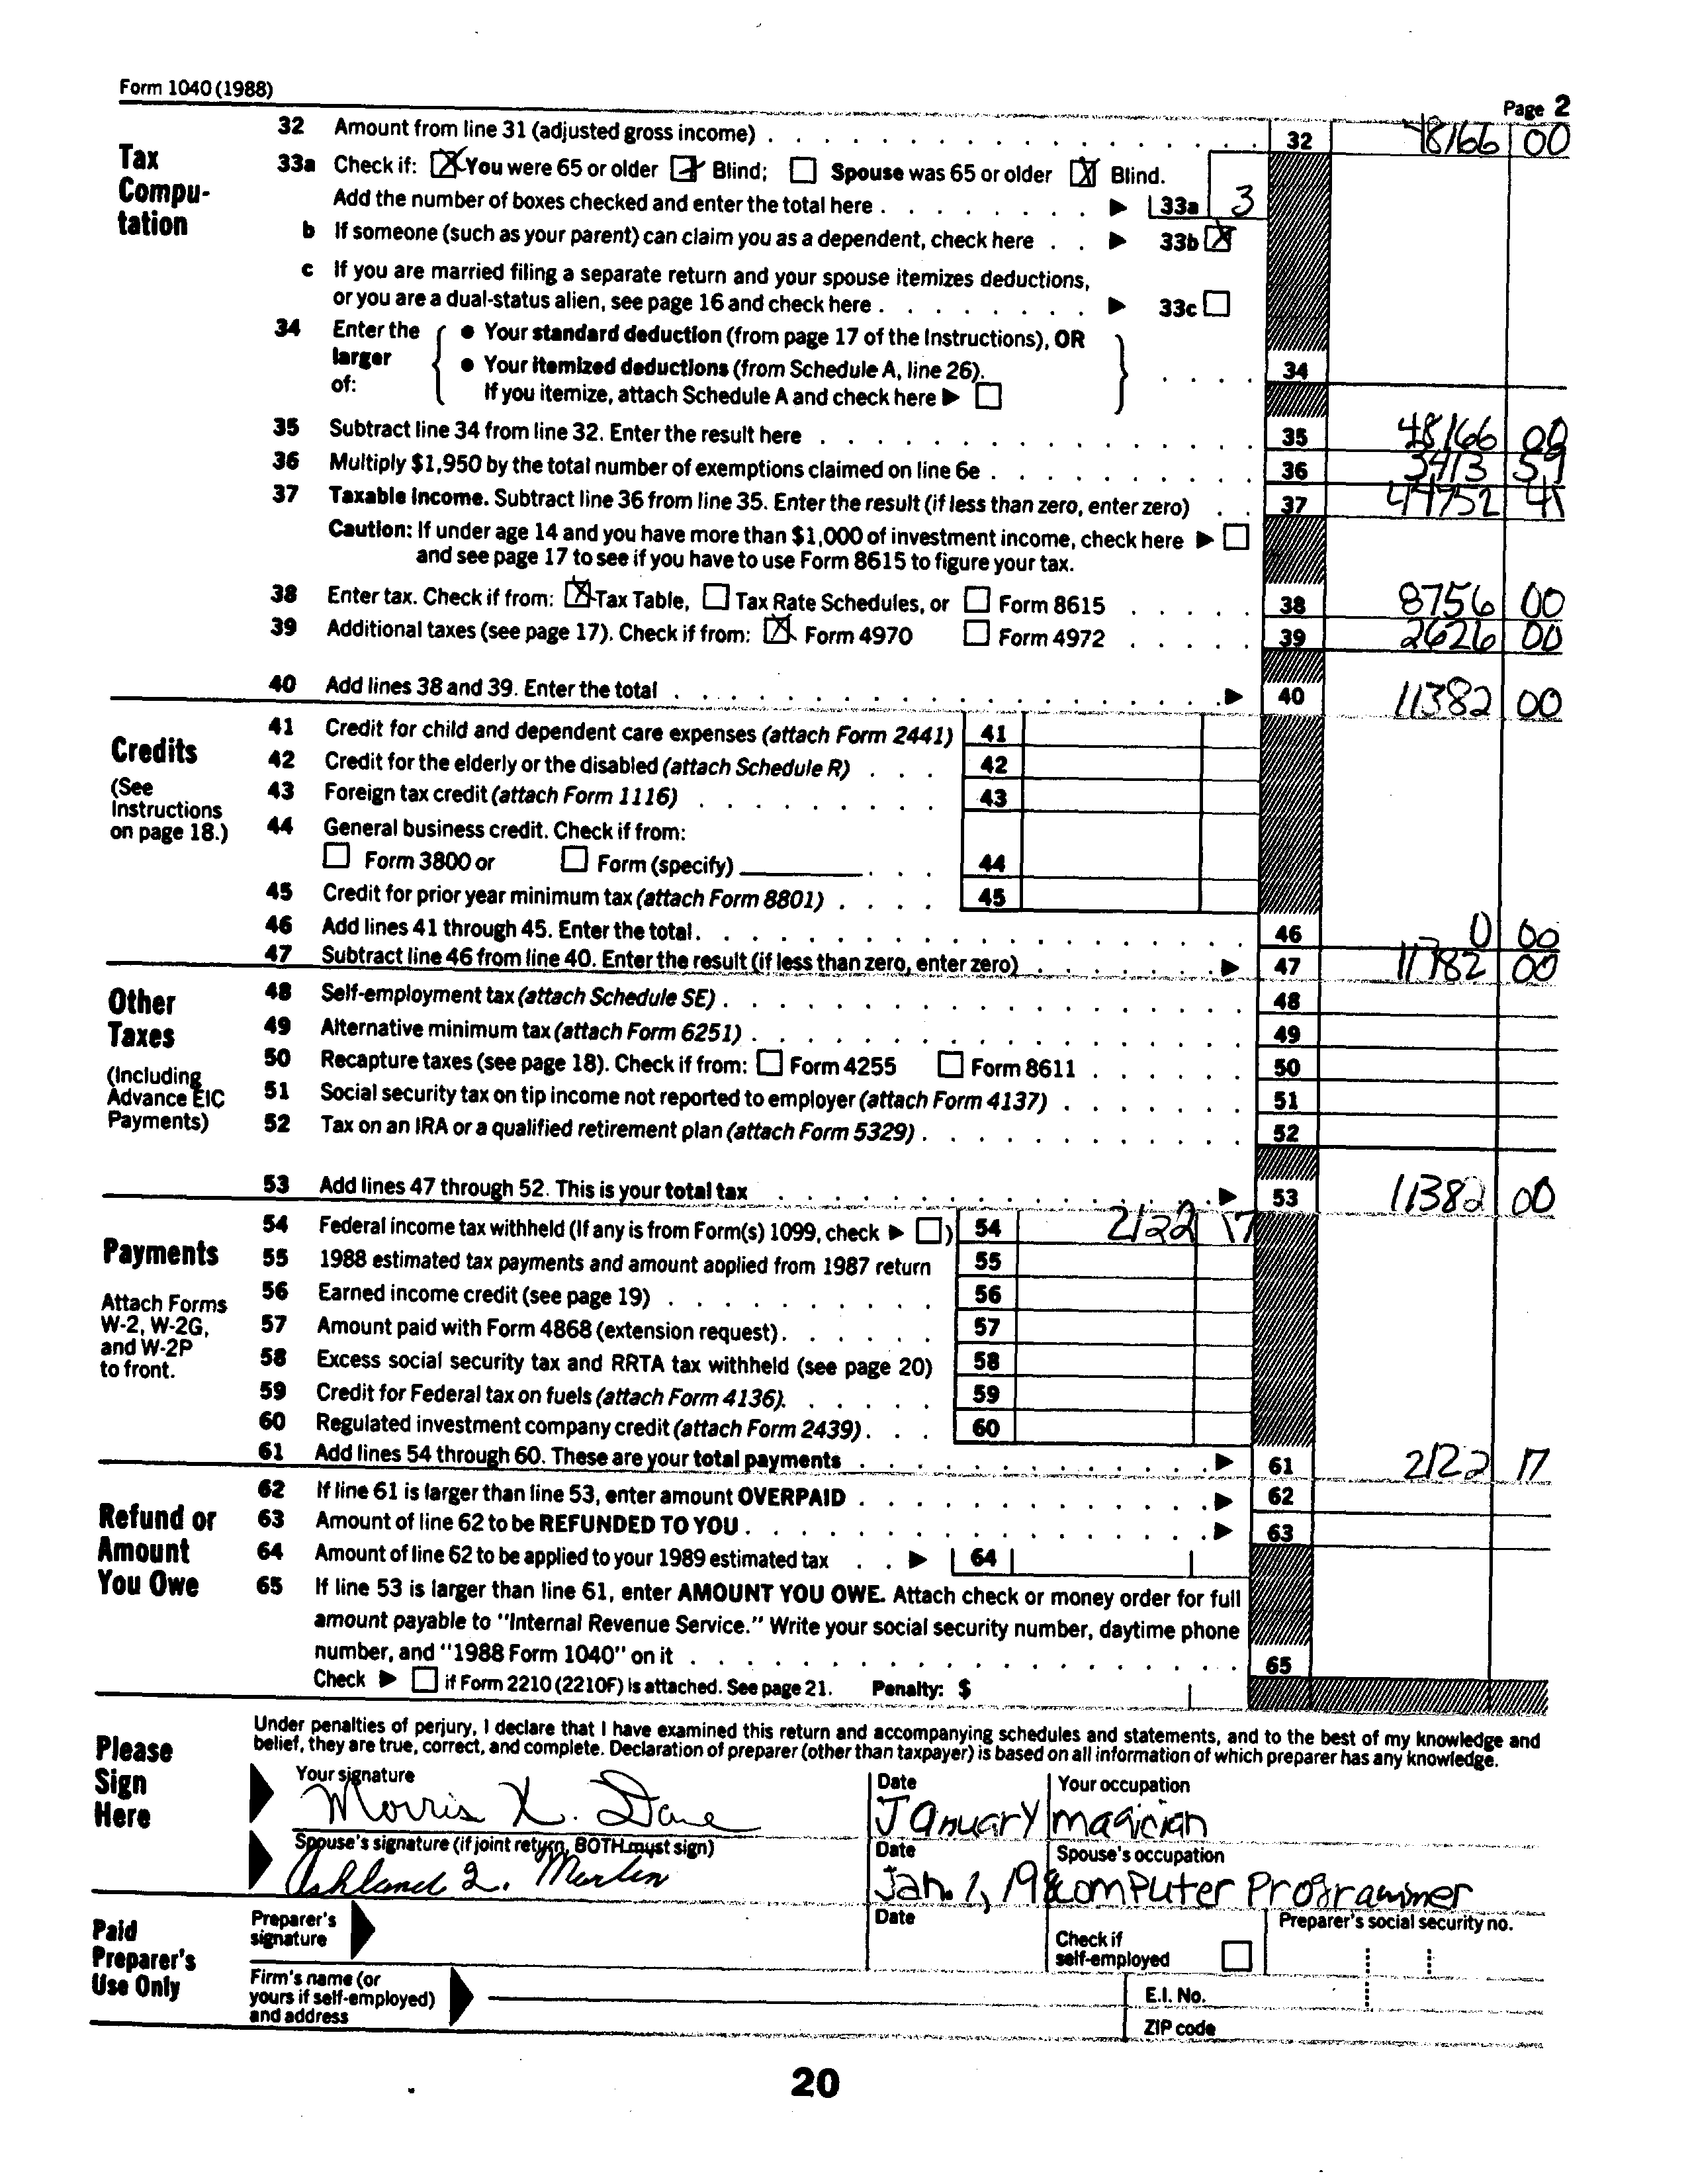 Form 1040 (1988)
Page 2
Tax Compu-tation
32 Amount from line 31 (adjusted gross income) 32 48166 00
33a Check if: ☒ You were 65 or older ☒ Blind; ☐ Spouse was 65 or older ☒ Blind.
Add the number of boxes checked and enter the total here ▶ 33a 3
b If someone (such as your parent) can claim you as a dependent, check here ▶ 33b ☒
c If you are married filing a separate return and your spouse itemizes deductions,
or you are a dual-status alien, see page 16 and check here ▶ 33c ☐
34 Enter the larger of:
● Your standard deduction (from page 17 of the Instructions), OR
● Your itemized deductions (from Schedule A, line 26).
If you itemize, attach Schedule A and check here ▶ ☐ 34
35 Subtract line 34 from line 32. Enter the result here 35 48166 00
36 Multiply $1,950 by the total number of exemptions claimed on line 6e 36 3413 59
37 Taxable income. Subtract line 36 from line 35. Enter the result (if less than zero, enter zero) 37 44752 41
Caution: If under age 14 and you have more than $1,000 of investment income, check here ▶ ☐
and see page 17 to see if you have to use Form 8615 to figure your tax.
38 Enter tax. Check if from: ☒ Tax Table, ☐ Tax Rate Schedules, or ☐ Form 8615 38 8756 00
39 Additional taxes (see page 17). Check if from: ☒ Form 4970 ☐ Form 4972 39 2626 00
40 Add lines 38 and 39. Enter the total ▶ 40 11382 00
Credits
(See Instructions on page 18.)
41 Credit for child and dependent care expenses (attach Form 2441) 41
42 Credit for the elderly or the disabled (attach Schedule R) 42
43 Foreign tax credit (attach Form 1116) 43
44 General business credit. Check if from:
☐ Form 3800 or ☐ Form (specify) 44
45 Credit for prior year minimum tax (attach Form 8801) 45
46 Add lines 41 through 45. Enter the total. 46 0 00
47 Subtract line 46 from line 40. Enter the result (if less than zero, enter zero) ▶ 47 11382 00
Other Taxes
(Including Advance EIC Payments)
48 Self-employment tax (attach Schedule SE) 48
49 Alternative minimum tax (attach Form 6251) 49
50 Recapture taxes (see page 18). Check if from: ☐ Form 4255 ☐ Form 8611 50
51 Social security tax on tip income not reported to employer (attach Form 4137) 51
52 Tax on an IRA or a qualified retirement plan (attach Form 5329) 52
53 Add lines 47 through 52. This is your total tax ▶ 53 11382 00
Payments
Attach Forms W-2, W-2G, and W-2P to front.
54 Federal income tax withheld (If any is from Form(s) 1099, check ▶ ☐) 54 2122 17
55 1988 estimated tax payments and amount applied from 1987 return 55
56 Earned income credit (see page 19) 56
57 Amount paid with Form 4868 (extension request) 57
58 Excess social security tax and RRTA tax withheld (see page 20) 58
59 Credit for Federal tax on fuels (attach Form 4136). 59
60 Regulated investment company credit (attach Form 2439) 60
61 Add lines 54 through 60. These are your total payments ▶ 61 2122 17
Refund or Amount You Owe
62 If line 61 is larger than line 53, enter amount OVERPAID ▶ 62
63 Amount of line 62 to be REFUNDED TO YOU ▶ 63
64 Amount of line 62 to be applied to your 1989 estimated tax ▶ 64
65 If line 53 is larger than line 61, enter AMOUNT YOU OWE. Attach check or money order for full
amount payable to "Internal Revenue Service." Write your social security number, daytime phone
number, and "1988 Form 1040" on it 65
Check ▶ ☐ if Form 2210 (2210F) is attached. See page 21. Penalty: $
Please Sign Here
Under penalties of perjury, I declare that I have examined this return and accompanying schedules and statements, and to the best of my knowledge and
belief, they are true, correct, and complete. Declaration of preparer (other than taxpayer) is based on all information of which preparer has any knowledge.
Your signature Date Your occupation
Morris X. Dane January magician
Spouse's signature (if joint return, BOTH must sign) Date Spouse's occupation
Ashland Q. Merlin Jan. 1, 198 computer Programmer
Paid Preparer's Use Only
Preparer's signature Date Check if self-employed ☐ Preparer's social security no.
Firm's name (or yours if self-employed) and address
E.I. No.
ZIP code
20